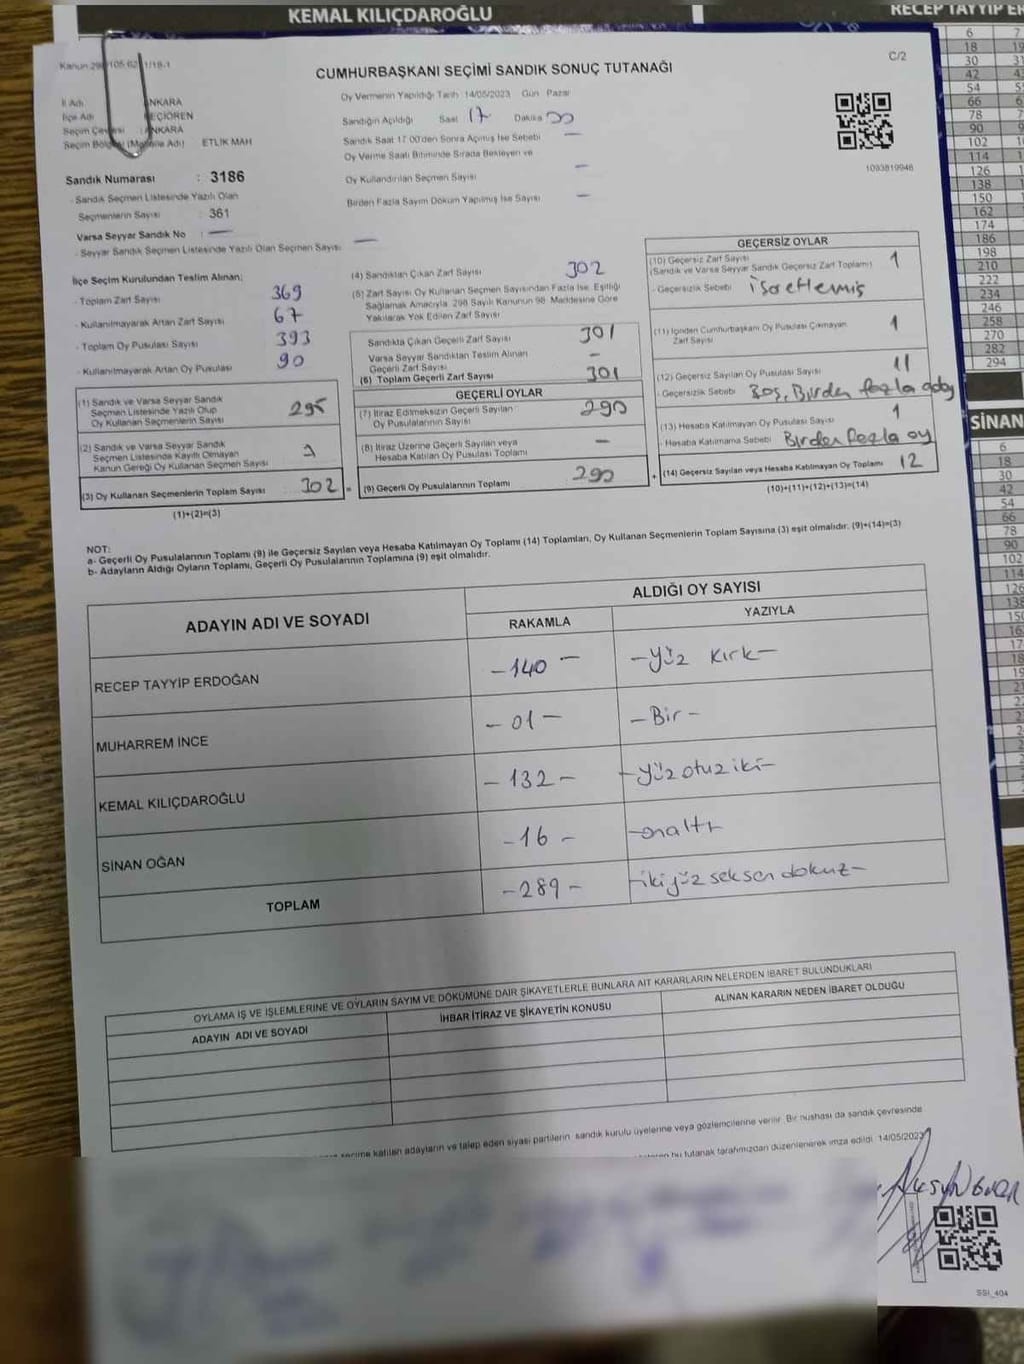 KEMAL KILIÇDAROĞLU
RECEP TAYYİP
C/2
CUMHURBAŞKANI SEÇİMİ SANDIK SONUÇ TUTANAĞI
İl Adı ANKARA
İlçe Adı KEÇİÖREN
Seçim Çevresi ANKARA
Seçim Bölgesi ETLİK MAH
Oy Vermenin Yapıldığı Tarih 14/05/2023 Gün Pazar
Sandığın Açıldığı Saat 17 Dakika 00
Sandık Saat 17:00'den Sonra Açılmış İse Sebebi —
Oy Verme Saati Bitiminde Sırada Bekleyen ve
Oy Kullandırılan Seçmen Sayısı —
Birden Fazla Sayım Döküm Yapılmış İse Sayısı —
1093819946
Sandık Numarası : 3186
- Sandık Seçmen Listesinde Yazılı Olan
Seçmenlerin Sayısı : 361
Varsa Seyyar Sandık No : —
- Seyyar Sandık Seçmen Listesinde Yazılı Olan Seçmen Sayısı —
İlçe Seçim Kurulundan Teslim Alınan:
- Toplam Zarf Sayısı 369
- Kullanılmayarak Artan Zarf Sayısı 67
- Toplam Oy Pusulası Sayısı 393
- Kullanılmayarak Artan Oy Pusulası 90
(1) Sandık ve Varsa Seyyar Sandık
Seçmen Listesinde Yazılı Olup
Oy Kullanan Seçmenlerin Sayısı 295
(2) Sandık ve Varsa Seyyar Sandık
Seçmen Listesinde Kayıtlı Olmayan
Kanun Gereği Oy Kullanan Seçmen Sayısı
(3) Oy Kullanan Seçmenlerin Toplam Sayısı 302
(1)+(2)=(3)
(4) Sandıktan Çıkan Zarf Sayısı 302
(5) Zarf Sayısı Oy Kullanan Seçmen Sayısından Fazla İse, Eşitliği
Sağlamak Amacıyla, 298 Sayılı Kanunun 98. Maddesine Göre
Yakılarak Yok Edilen Zarf Sayısı
Sandıkta Çıkan Geçerli Zarf Sayısı 301
Varsa Seyyar Sandıktan Teslim Alınan
Geçerli Zarf Sayısı —
(6) Toplam Geçerli Zarf Sayısı 301
GEÇERLİ OYLAR
(7) İtiraz Edilmeksizin Geçerli Sayılan
Oy Pusulalarının Sayısı 290
(8) İtiraz Üzerine Geçerli Sayılan veya
Hesaba Katılan Oy Pusulası Toplamı —
= (9) Geçerli Oy Pusulalarının Toplamı 290
GEÇERSİZ OYLAR
(10) Geçersiz Zarf Sayısı
(Sandık ve Varsa Seyyar Sandık Geçersiz Zarf Toplamı) 1
- Geçersizlik Sebebi : işaretlemiş
(11) İçinden Cumhurbaşkanı Oy Pusulası Çıkmayan
Zarf Sayısı 1
(12) Geçersiz Sayılan Oy Pusulası Sayısı 11
- Geçersizlik Sebebi : Boş, Birden fazla aday
(13) Hesaba Katılmayan Oy Pusulası Sayısı 1
- Hesaba Katılmama Sebebi : Birden fazla oy
+ (14) Geçersiz Sayılan veya Hesaba Katılmayan Oy Toplamı 12
(10)+(11)+(12)+(13)=(14)
NOT:
a- Geçerli Oy Pusulalarının Toplamı (9) ile Geçersiz Sayılan veya Hesaba Katılmayan Oy Toplamı (14) Toplamları, Oy Kullanan Seçmenlerin Toplam Sayısına (3) eşit olmalıdır. (9)+(14)=(3)
b- Adayların Aldığı Oyların Toplamı, Geçerli Oy Pusulalarının Toplamına (9) eşit olmalıdır.
ADAYIN ADI VE SOYADI
ALDIĞI OY SAYISI
RAKAMLA YAZIYLA
RECEP TAYYİP ERDOĞAN -140- -Yüz kırk-
MUHARREM İNCE -01- -Bir-
KEMAL KILIÇDAROĞLU -132- -Yüz otuz iki-
SİNAN OĞAN -16- -onaltı
TOPLAM -289- -ikiyüz seksen dokuz-
OYLAMA İŞ VE İŞLEMLERİNE VE OYLARIN SAYIM VE DÖKÜMÜNE DAİR ŞİKAYETLERLE BUNLARA AİT KARARLARIN NELERDEN İBARET BULUNDUKLARI
ADAYIN ADI VE SOYADI İHBAR İTİRAZ VE ŞİKAYETİN KONUSU ALINAN KARARIN NEDEN İBARET OLDUĞU
seçime katılan adayların ve talep eden siyasi partilerin, sandık kurulu üyelerine veya gözlemcilerine verilir. Bir nüshası da sandık çevresinde
bu tutanak tarafımızdan düzenlenerek imza edildi. 14/05/2023
SSI_404
6
18
30
42
54
66
78
90
102
114
126
138
150
162
174
186
198
210
222
234
246
258
270
282
294
SİNAN
6
18
30
42
54
66
78
90
102
114